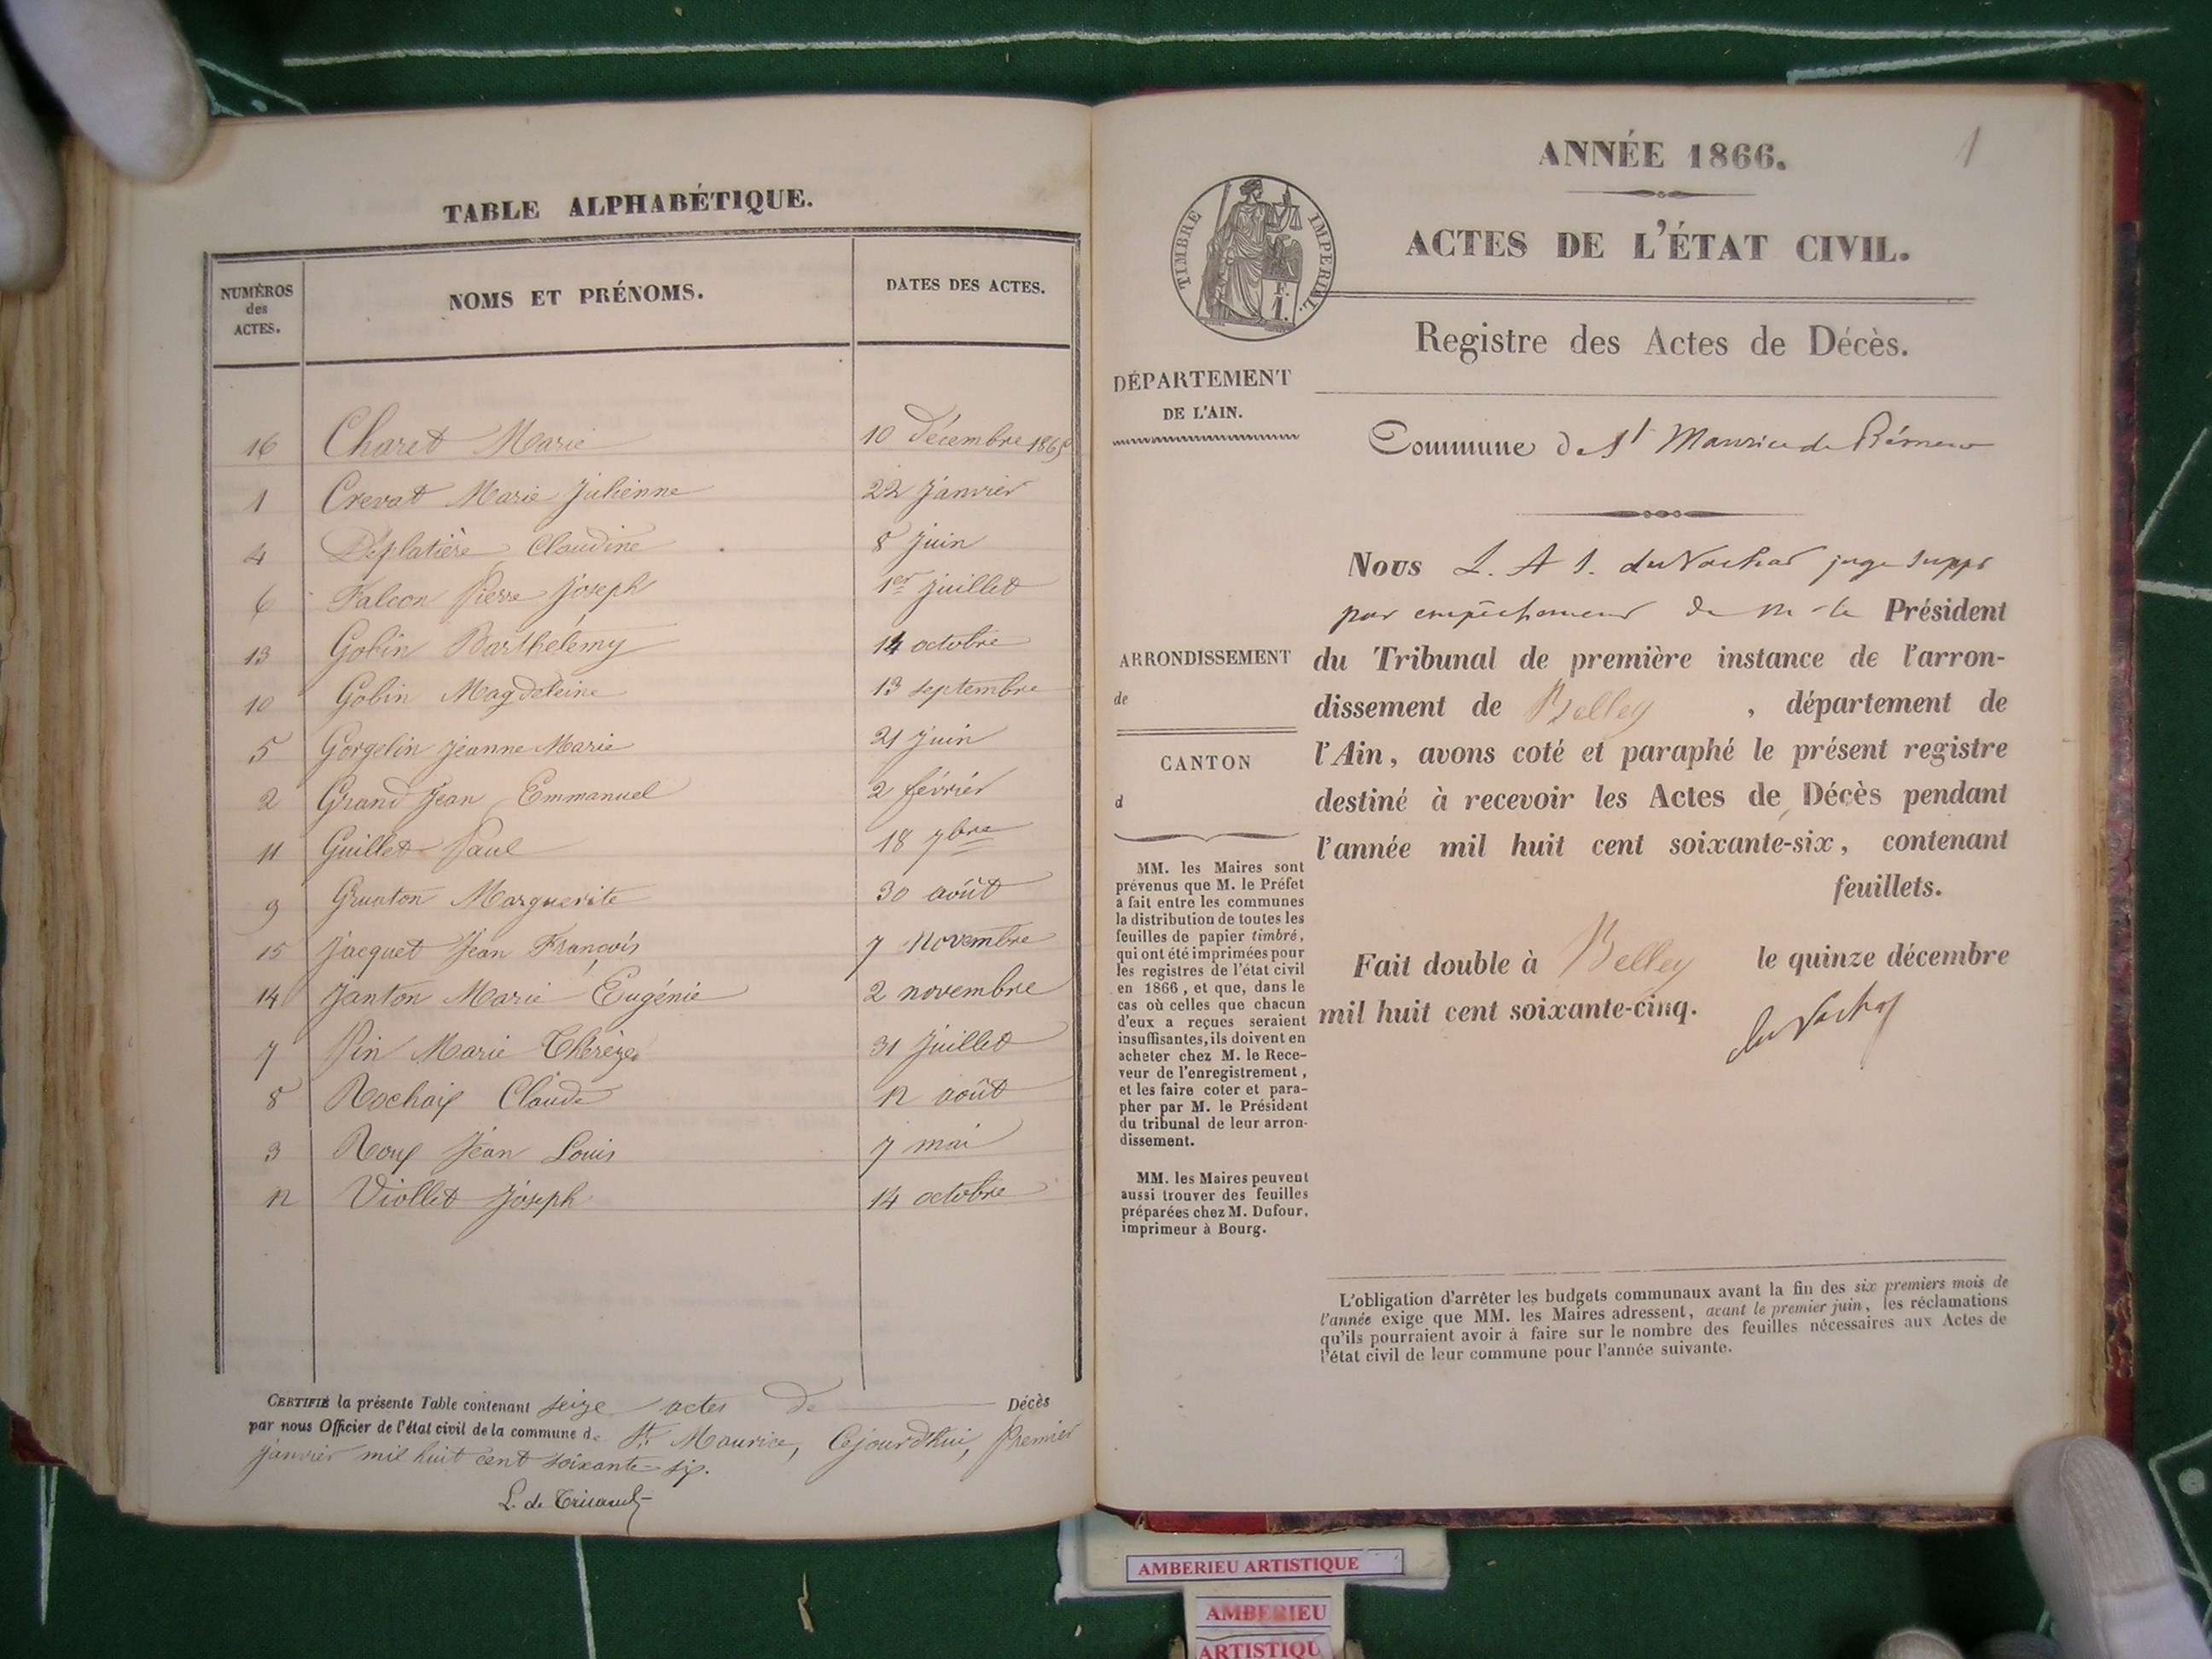 TABLE ALPHABÉTIQUE.
NUMÉROS
des
ACTES.
NOMS ET PRÉNOMS.
DATES DES ACTES.
16 Charet Marie 10 Décembre 1865
1 Crevat Marie Julienne 22 Janvier
4 Déplatière Claudine 8 Juin
6 Falcon Pierre Joseph 1er Juillet
13 Gobin Barthélemy 14 octobre
10 Gobin Magdeleine 13 septembre
5 Gorgelin Jeanne Marie 21 Juin
2 Grand Jean Emmanuel 2 février
11 Guillet Paul 18 7bre
9 Marguerite 30 août
15 Jacquet Jean François 7 Novembre
14 Janton Marie Eugénie 2 novembre
7 Pin Marie Thérèze 31 Juillet
8 Rochaix Claude 12 août
3 Roux Jean Louis 7 mai
12 Viollet Joseph 14 octobre
CERTIFIÉ la présente Table contenant seize actes de Décès
par nous Officier de l'état civil de la commune de St. Maurice, Cejourd'hui, Premier
Janvier mil huit cent soixante-six.
L. de Tricaud
1
ANNÉE 1866.
TIMBRE IMPERIAL.
ACTES DE L'ÉTAT CIVIL.
Registre des Actes de Décès.
DÉPARTEMENT
DE L'AIN.
Commune de St Maurice de Rémens
ARRONDISSEMENT
de
CANTON
d
MM. les Maires sont
prévenus que M. le Préfet
a fait entre les communes
la distribution de toutes les
feuilles de papier timbré,
qui ont été imprimées pour
les registres de l'état civil
en 1866, et que, dans le
cas où celles que chacun
d'eux a reçues seraient
insuffisantes, ils doivent en
acheter chez M. le Rece-
veur de l'enregistrement,
et les faire coter et para-
pher par M. le Président
du tribunal de leur arron-
dissement.
MM. les Maires peuvent
aussi trouver des feuilles
préparées chez M. Dufour,
imprimeur à Bourg.
Nous L. A juge suppt
par empêchement de M. le Président
du Tribunal de première instance de l'arron-
dissement de Belley, département de
l'Ain, avons coté et paraphé le présent registre
destiné à recevoir les Actes de Décès pendant
l'année mil huit cent soixante-six, contenant
feuillets.
Fait double à Belley le quinze décembre
mil huit cent soixante-cinq.
L'obligation d'arrêter les budgets communaux avant la fin des six premiers mois de
l'année exige que MM. les Maires adressent, avant le premier juin, les réclamations
qu'ils pourraient avoir à faire sur le nombre des feuilles nécessaires aux Actes de
l'état civil de leur commune pour l'année suivante.
AMBERIEU ARTISTIQUE
AMBERIEU
ARTISTIQU